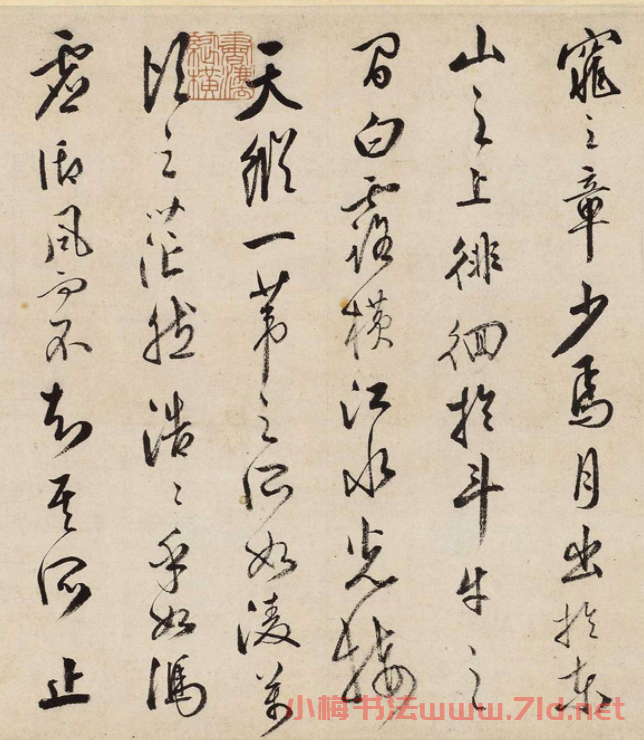 窕之章少焉月出於東
山之上徘徊於斗牛之
間白露橫江水光接
天縱一葦之所如淩萬
頃之茫然浩〻乎如馮
虛御風而不知其所止
小梅书法www.7ld.net